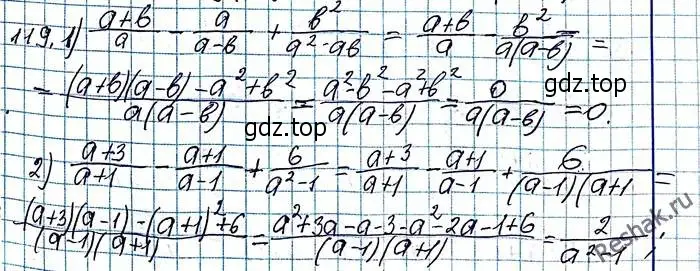 119. 1) (a+b)/a − a/(a−b) + b²/(a²−ab) = (a+b)/a − b²/(a(a−b)) =
= ((a+b)(a−b)−a²+b²)/(a(a−b)) = (a²−b²−a²+b²)/(a(a−b)) = 0/(a(a−b)) = 0.
gdz.top
gdz.top
2) (a+3)/(a+1) − (a+1)/(a−1) + 6/(a²−1) = (a+3)/(a+1) − (a+1)/(a−1) + 6/((a−1)(a+1 =
((a+3)(a−1)−(a+1)²+6)/((a−1)(a+1)) = (a²+3a−a−3−a²−2a−1+6)/((a−1)(a+1)) = 2/(a²−1);
gdz.top
Reshak.ru